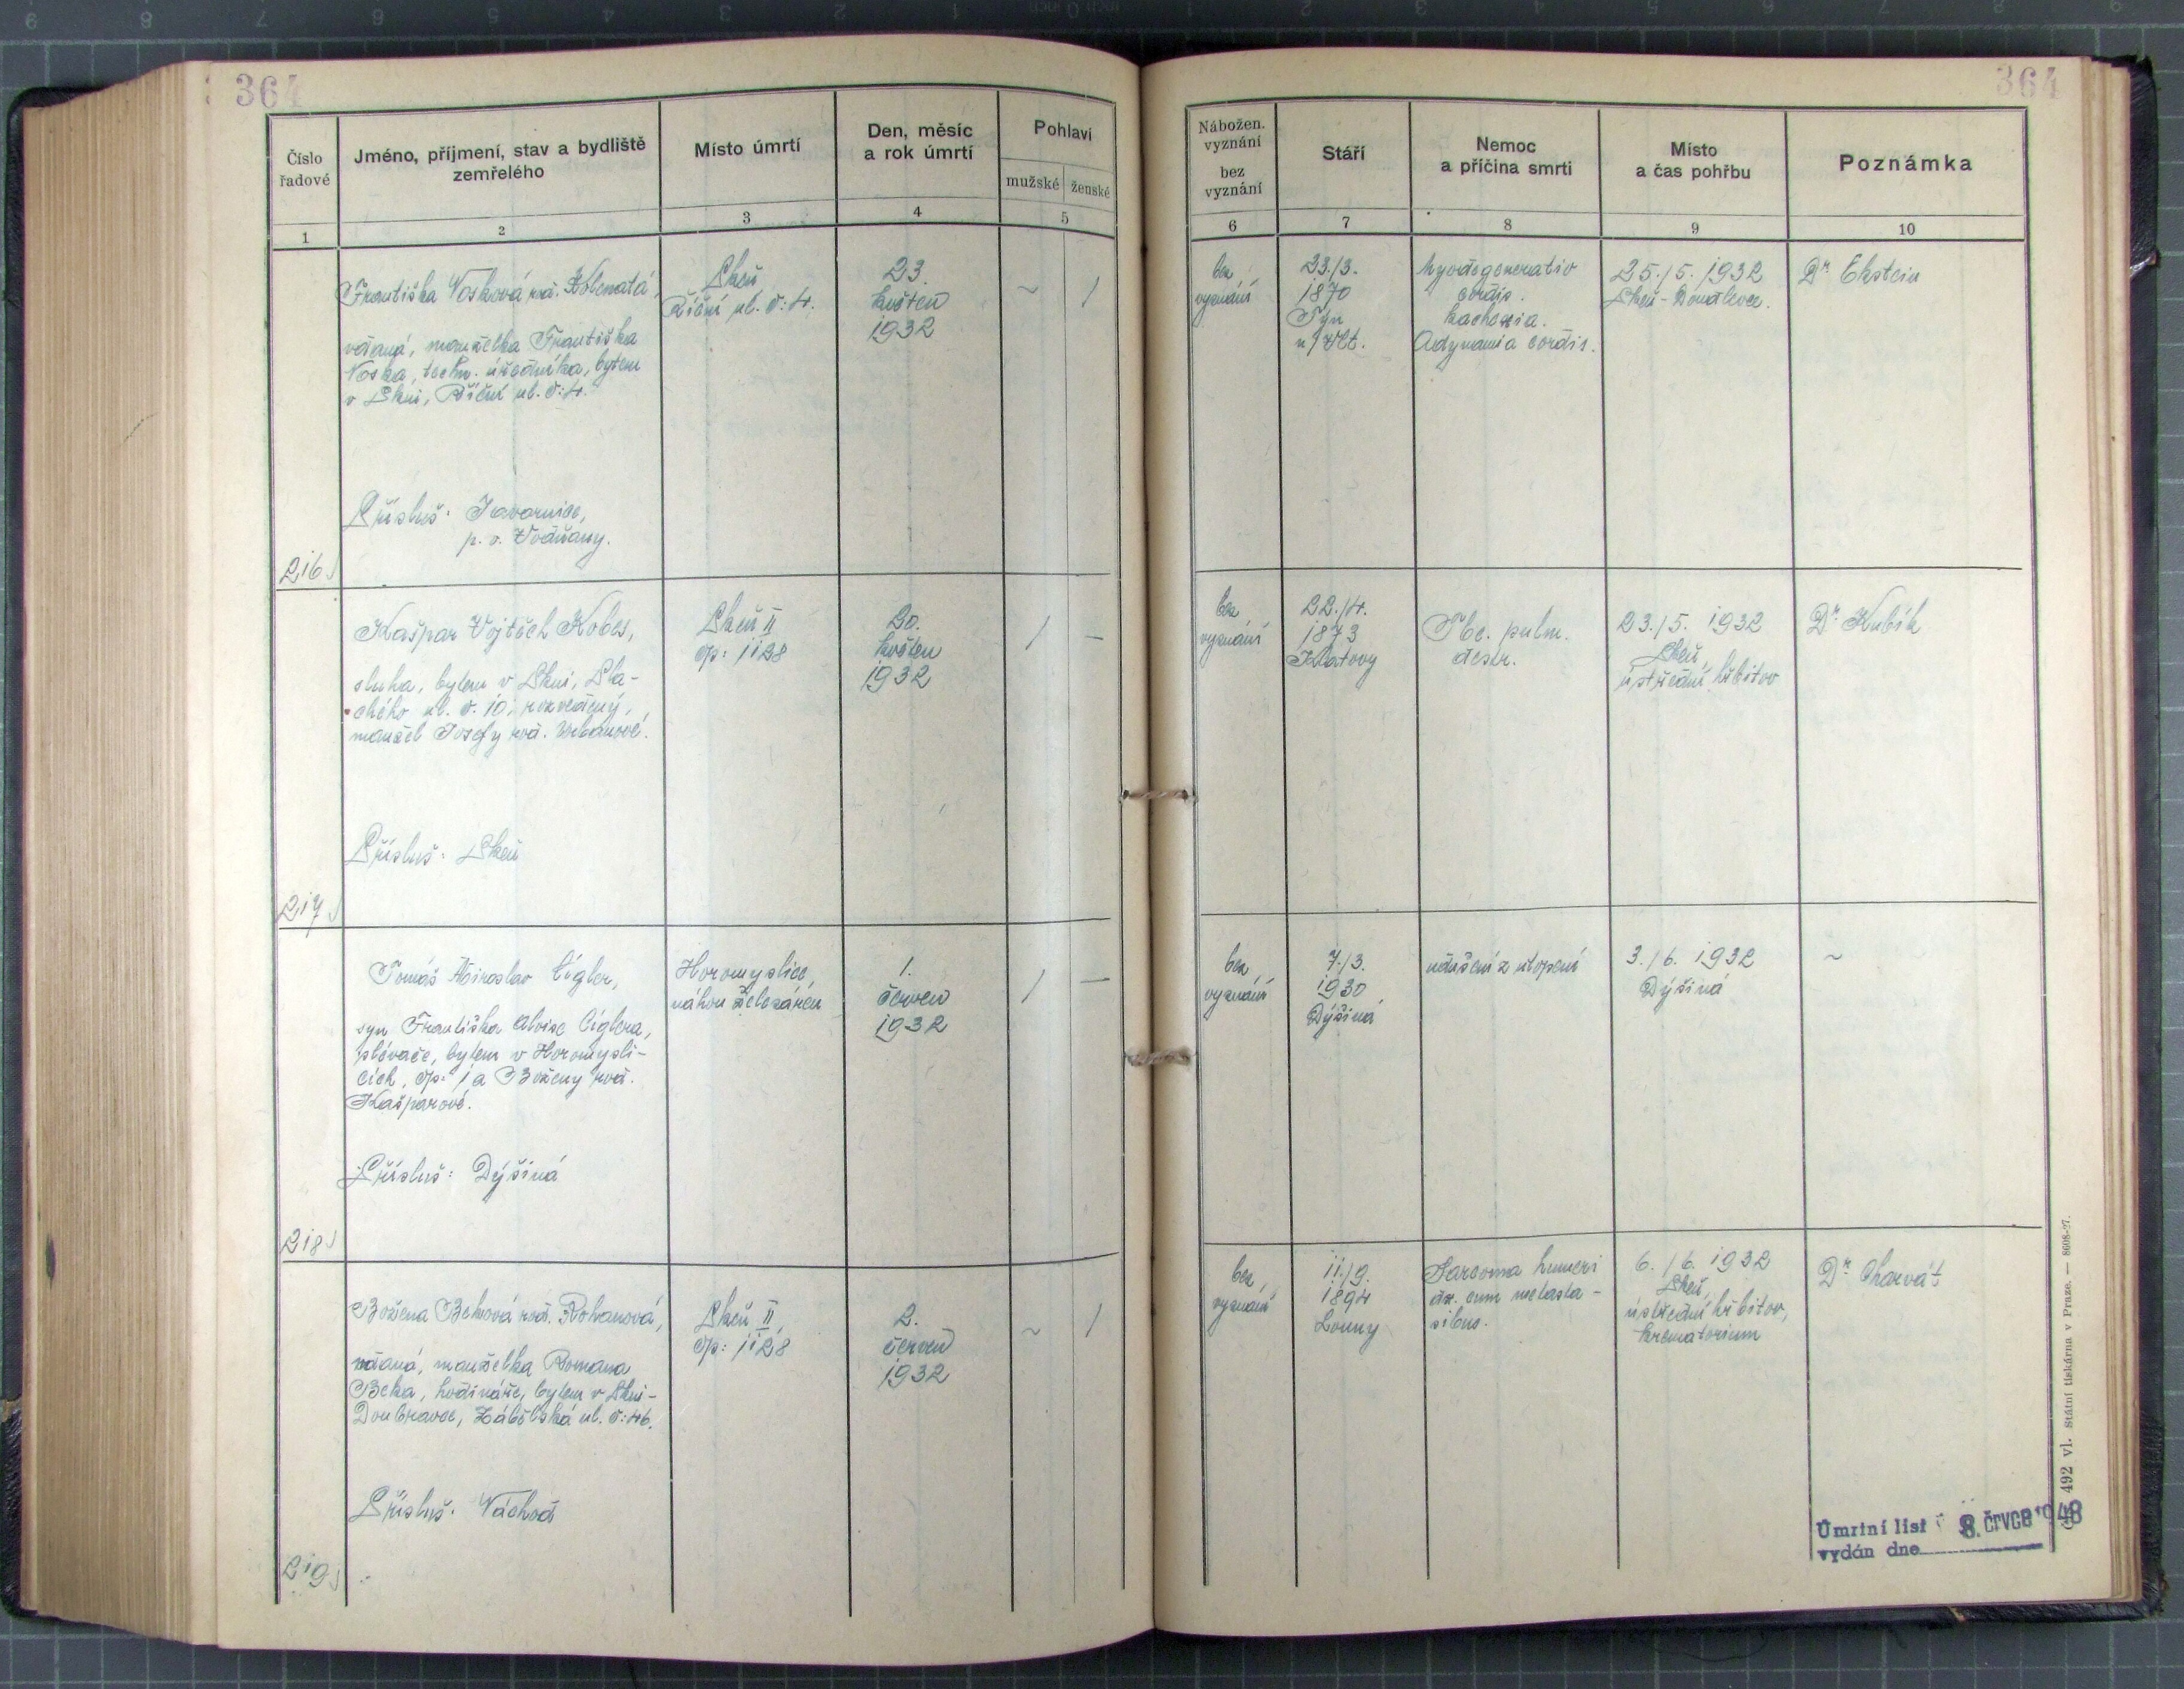 364
364
Číslo
řadové
Jméno, příjmení, stav a bydliště
zemřelého
Místo úmrtí
Den, měsíc
a rok úmrtí
Pohlaví
mužské
ženské
1
2
3
4
5
Nábožen.
vyznání
bez
vyznání
Stáří
Nemoc
a příčina smrti
Místo
a čas pohřbu
Poznámka
6
7
8
9
10
216
Františka Vosková roz. Kolenatá,
vdaná, manželka Františka
Voska, techn. úředníka, bytem
v Plzni, Říční ul. č: 4.
Přísluš: Javornice,
p. o. Vodňany.
Plzeň
Říční ul. č: 4.
23.
květen
1932
~
1
bez
vyznání
23./3.
1870
Týn
n/Vlt.
Myodegeneratio
cordis.
Kachexia.
Adynamia cordis.
25./5. 1932
Plzeň-Doudlevce.
Dr Ekstein
217
Kašpar Vojtěch Kobes,
sluha, bytem v Plzni, Pla-
chého ul. č. 10, rozvedený,
manžel Josefy roz. Urbanové.
Přísluš: Plzeň
Plzeň II
čp: 1128
20.
květen
1932
1
—
bez
vyznání
22./4.
1873
Klatovy
Tbc. pulm.
destr.
23./5. 1932
Plzeň,
ústřední hřbitov
Dr Kubík
218
Tomáš Miroslav Cígler,
syn Františka Aloise Cíglera,
slévače, bytem v Horomysli-
cích, čp: 1 a Boženy roz.
Kašparové.
Přísluš: Dýšiná
Horomyslice,
náhon železáren
1.
červen
1932
1
—
bez
vyznání
7./3.
1930
Dýšiná
udušení z utopení
3./6. 1932
Dýšiná
~
219
Božena Beková roz. Rohanová,
vdaná, manželka Romana
Beka, hodináře, bytem v Plzni-
Doubravce, Zábělská ul. č: 46.
Přísluš: Náchod
Plzeň II,
čp: 1128
2.
červen
1932
~
1
bez
vyznání
11./9.
1894
Louny
Sarcoma humeri
dx. cum metasta-
sibus.
6./6. 1932
Plzeň,
ústřední hřbitov,
krematorium
Dr Charvát
Úmrtní list
vydán dne
8. črvce 1948
492 vl. Státní tiskárna v Praze. — 8608-27.